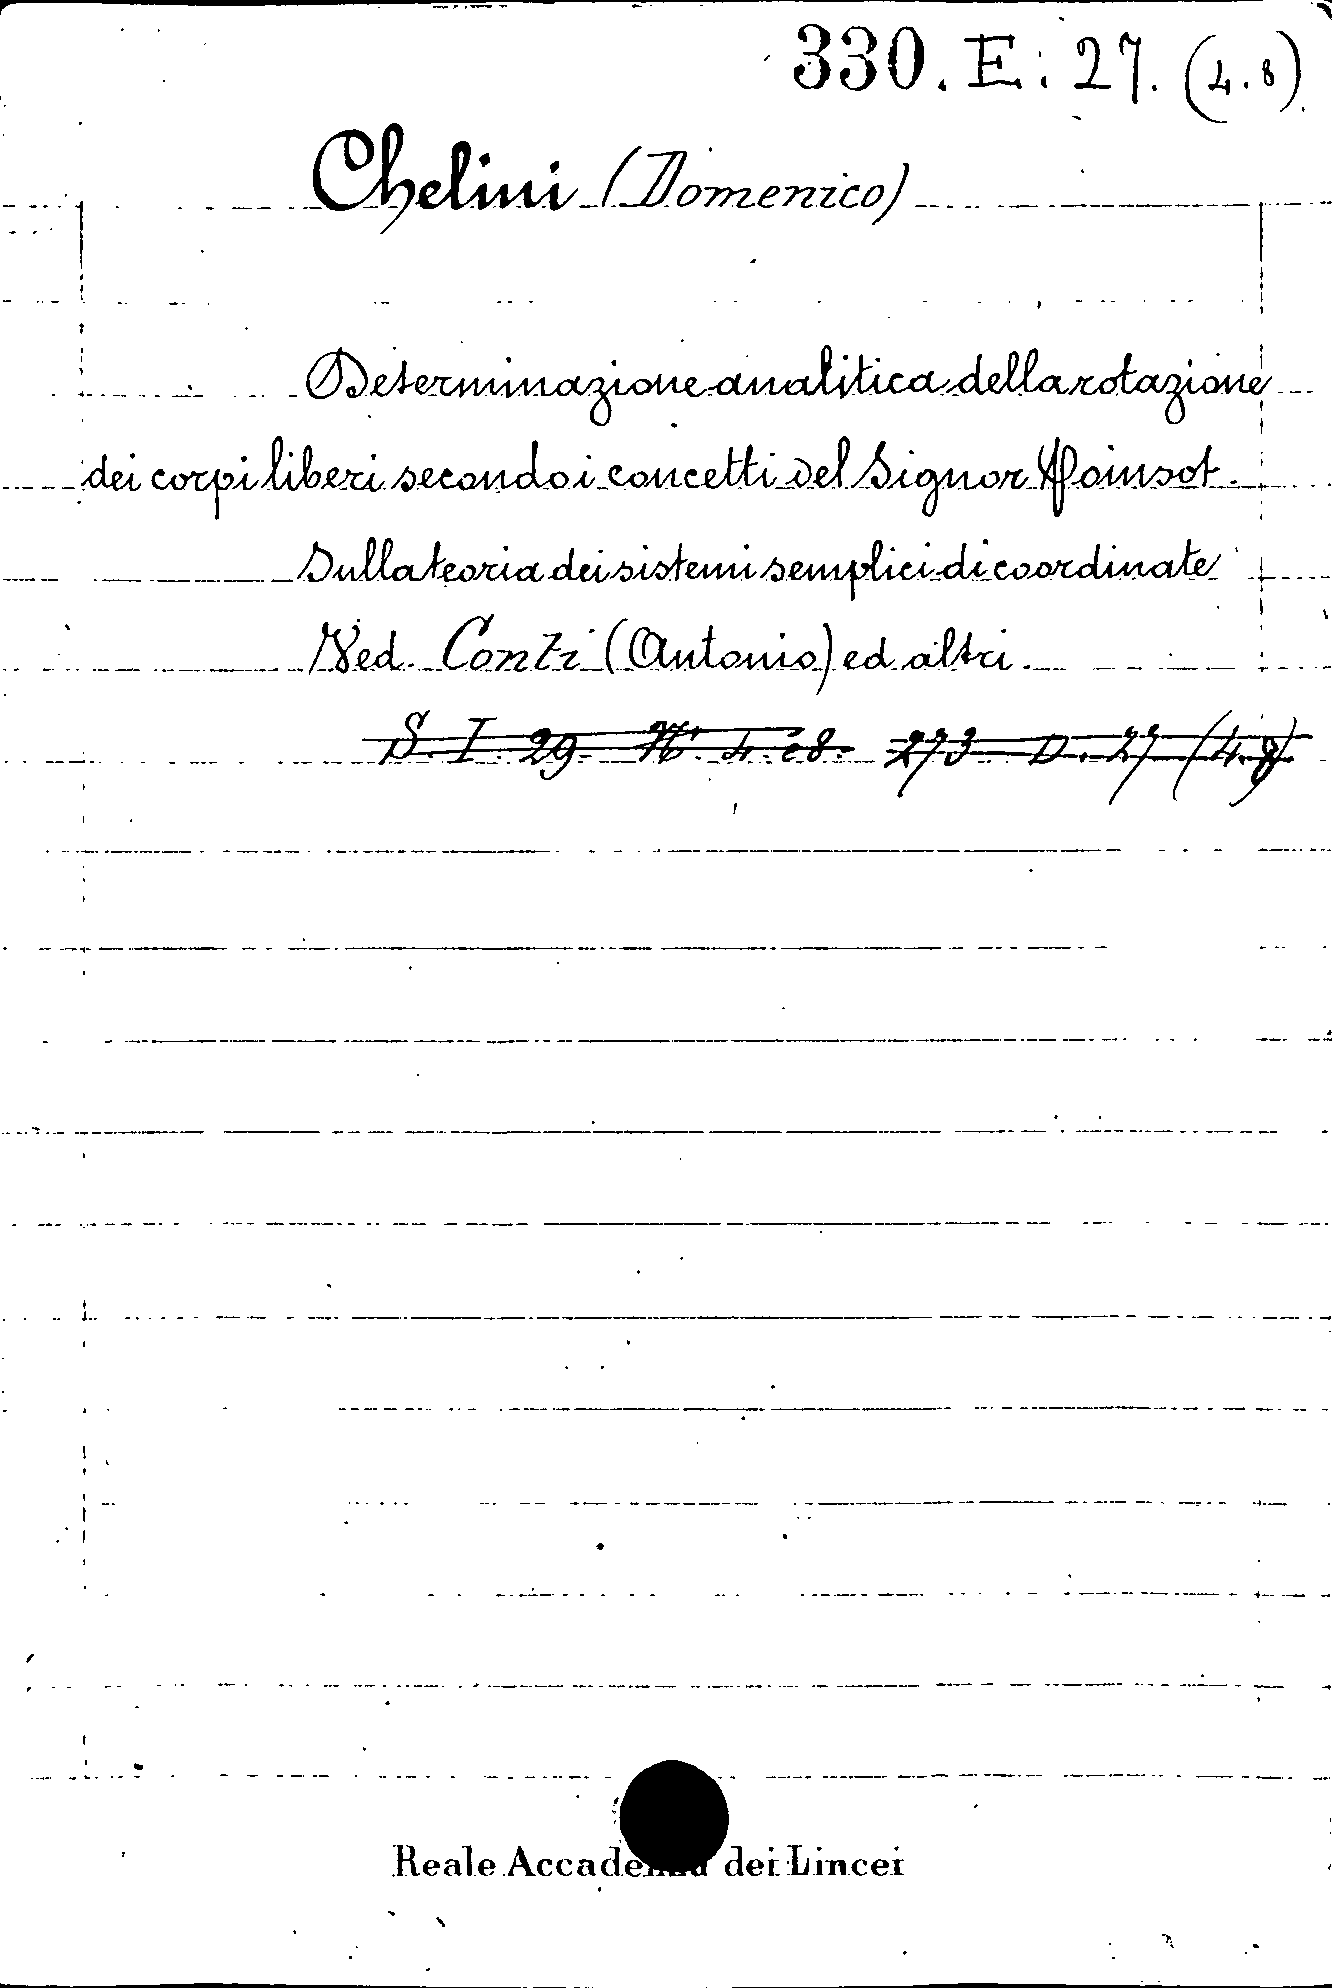 330. E. 27. (4.8)
Chelini (Domenico)
Determinazione analitica della rotazione
dei corpi liberi secondo i concetti del Signor Poinsot.
Sulla teoria dei sistemi semplici di coordinate
Ved. Conti (Antonio) ed altri.
S. I. 29. N.i 4. e 8. 273 D. 27 (4.8)
Reale Accademia dei Lincei